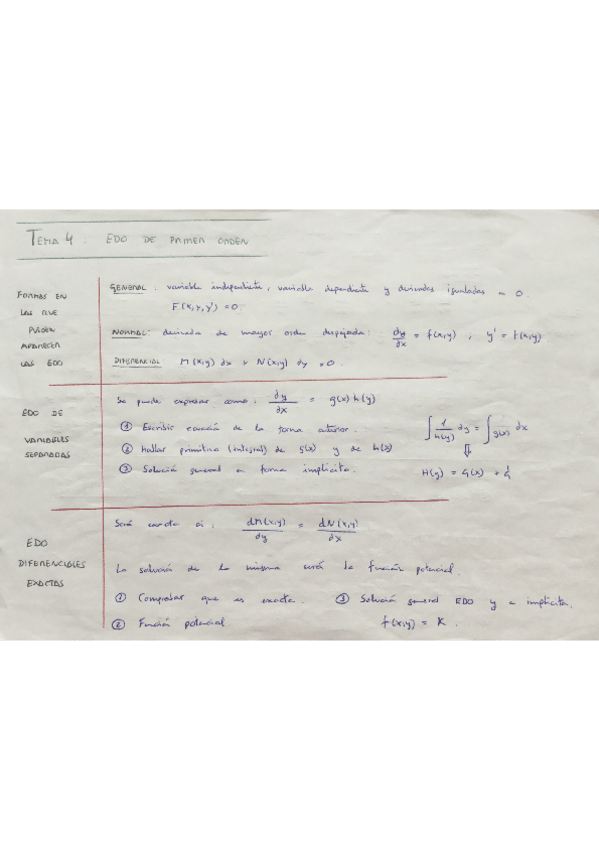 TEMA 4 : EDO DE PRIMER ORDEN
FORMAS EN LAS QUE PUEDEN APARECER LAS EDO
GENERAL : variable independiente, variable dependiente y derivadas igualadas a 0.
F(x,y,y') = 0.
NORMAL: derivada de mayor orden despejada: dy/dx = f(x,y) , y' = f(x,y)
DIFERENCIAL: M(x,y) dx + N(x,y) dy = 0.
EDO DE VARIABLES SEPARADAS
Se puede expresar como : dy/dx = g(x) h(y)
① Escribir ecuación de la forma anterior.
∫ 1/h(y) dy = ∫ g(x) dx
② Hallar primitiva (integral) de g(x) y de h(x)
⇓
③ Solución general en forma implícita.
H(y) = G(x) + C
EDO DIFERENCIALES EXACTAS
Será exacta si : dM(x,y)/dy = dN(x,y)/dx
La solución de la misma será la función potencial.
① Comprobar que es exacta.
③ Solución general EDO y = implícita.
② Función potencial.
f(x,y) = K.